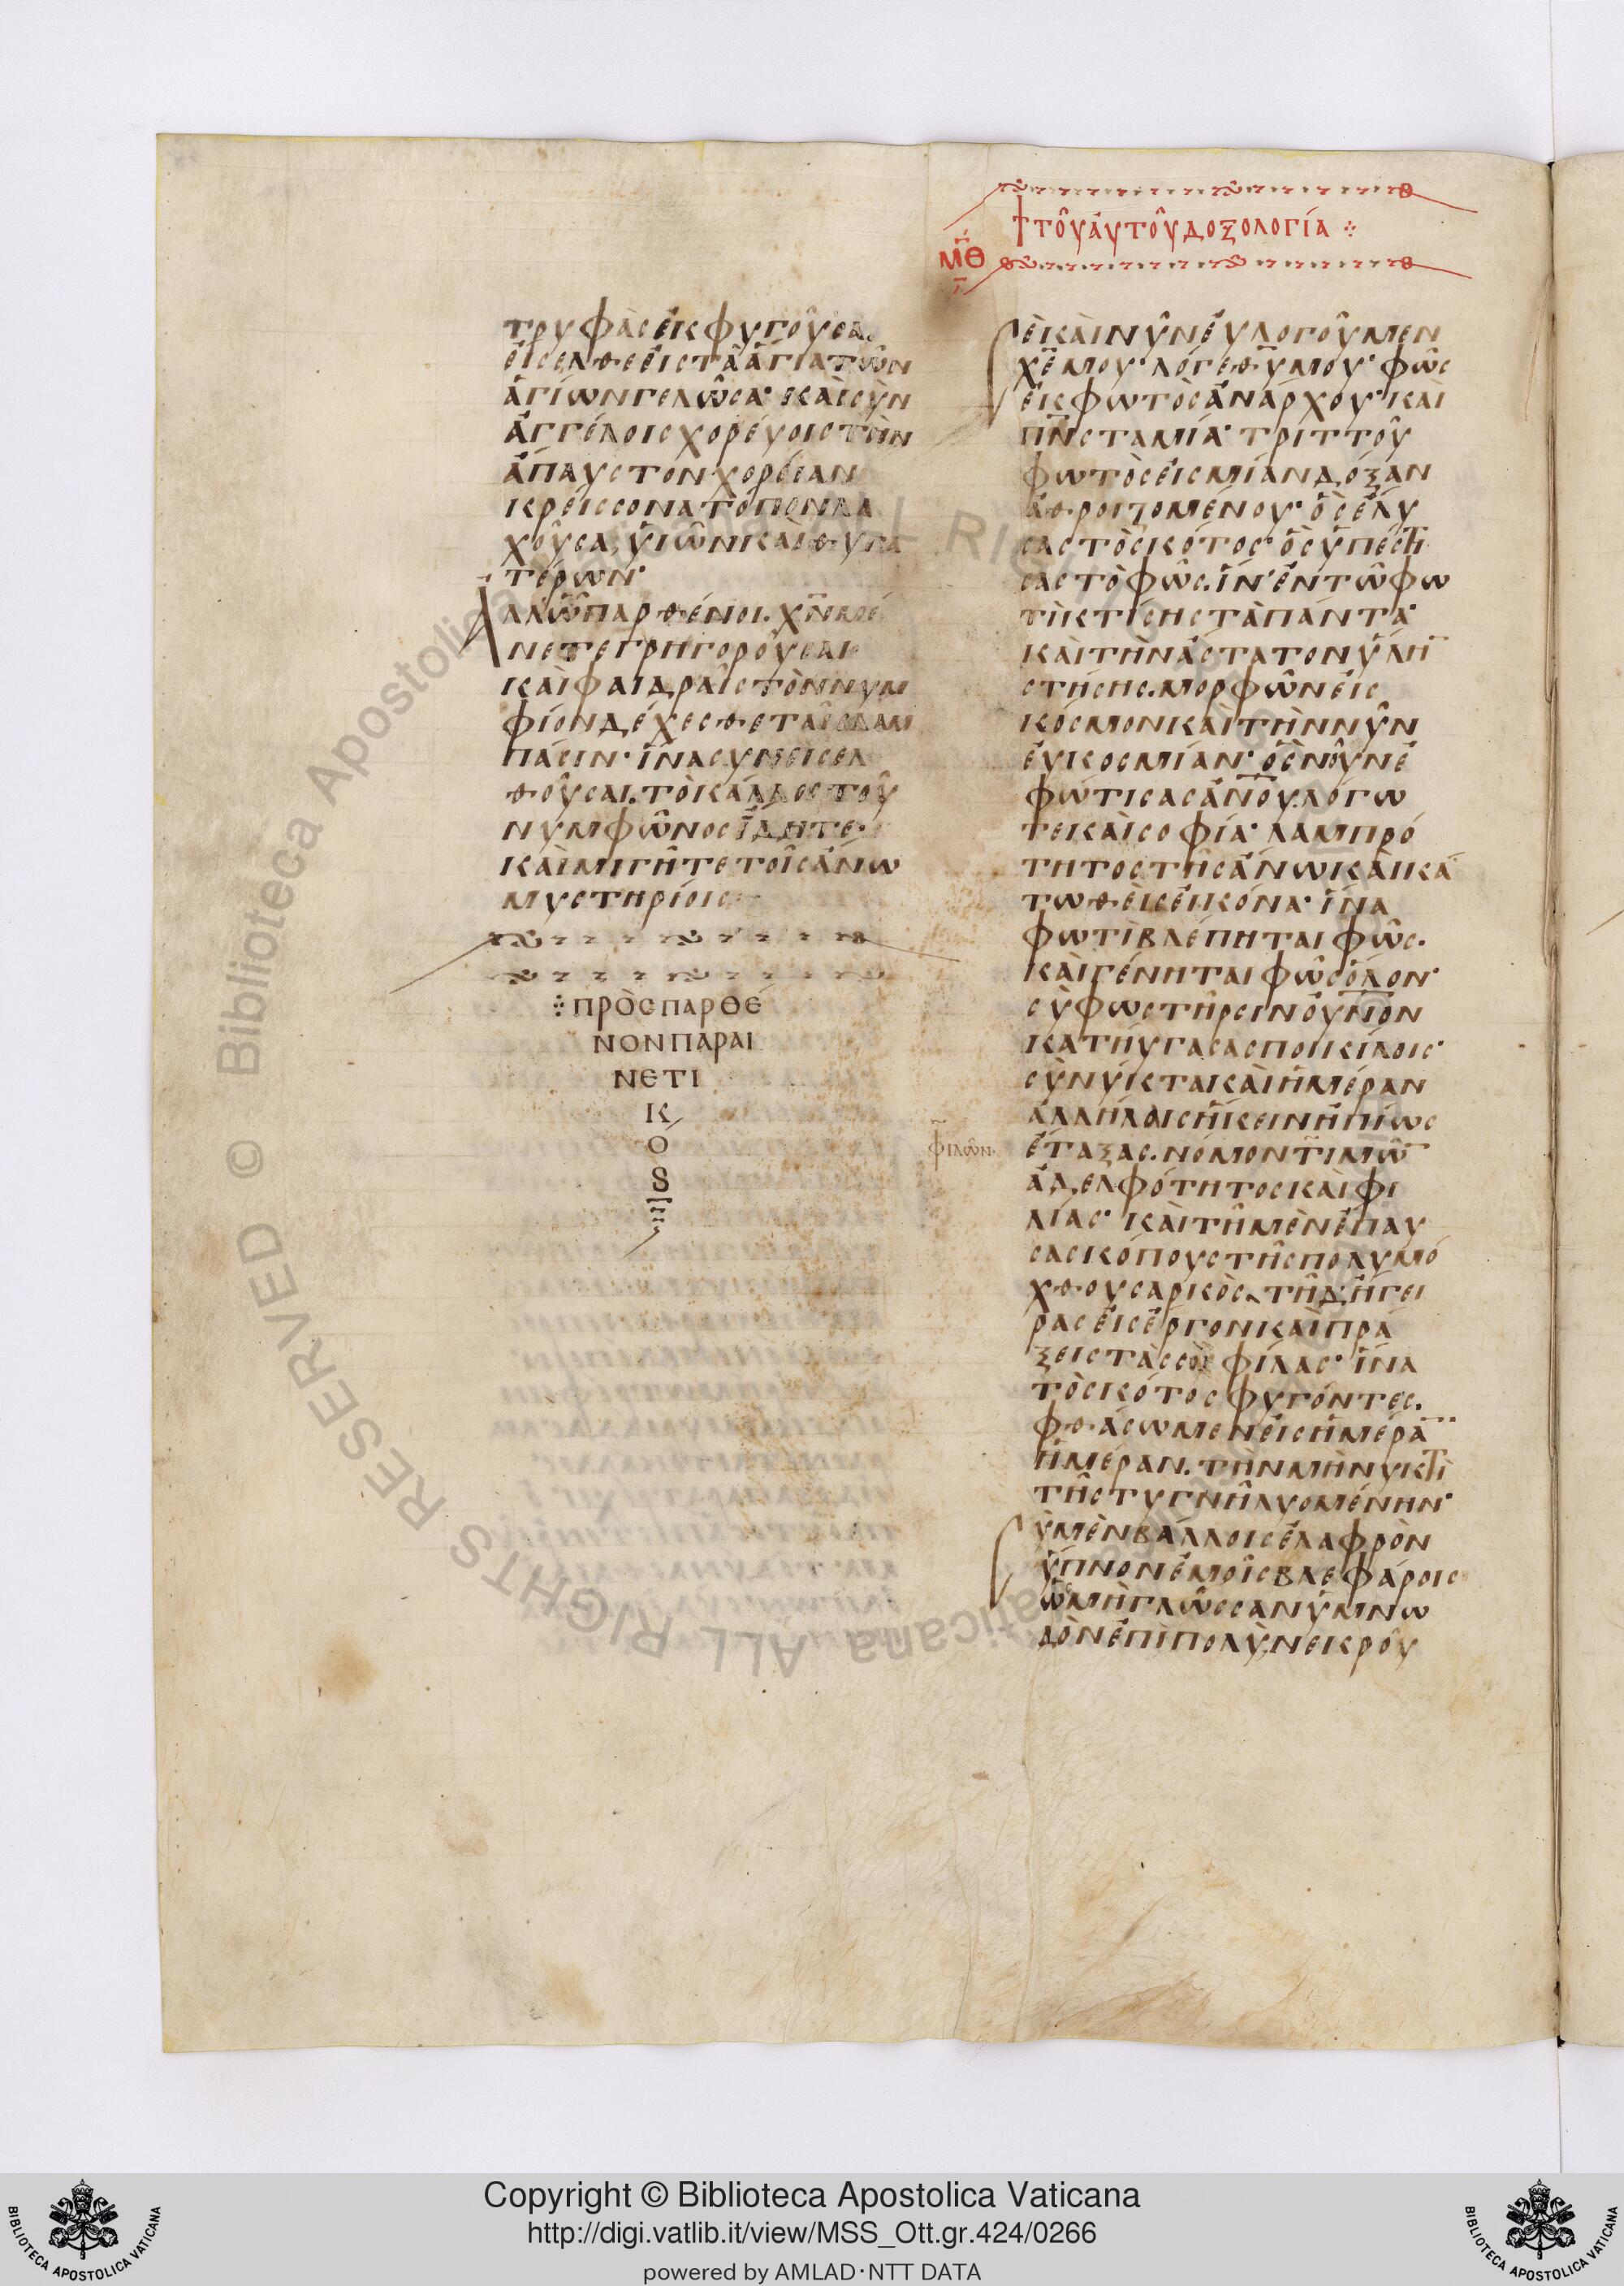 τρυφὰς ἐκφυγοῦσα.
εἴσελθε εἰς τὰ ἅγια τῶν
ἁγίων γελῶσα· καὶ σὺν
ἀγγέλοις χορεύοις τὴν
ἄπαυστον χορείαν
κρείσσονα τόπον λα
χοῦσα, υἱῶν καὶ θυγα
τέρων·
Ἀλλ' ὦ παρθένοι. χν̅ μεί
νετε γρηγοροῦσαι
καὶ φαιδραῖς τὸν νυμ
φίον δέχεσθε ταῖς λαμ
πάσιν· ἵνα συνεισελ
θοῦσαι, τὸ κάλλος τοῦ
νυμφῶνος ἴδητε·
καὶ μιγῆτε τοῖς ἄνω
μυστηρίοις
⁘ ΠΡῸΣ ΠΑΡΘΕ
ΝΟΝ ΠΑΡΑΙ
ΝΕΤΙ
Κ
Ο
S
† ΤΟΥ ΑΥΤΟΥ ΔΟΞΟΛΟΓΙΑ ⁘
ΜΘ
Σὲ καὶ νῦν εὐλογοῦμεν
χε̅ μου· λόγε θυ̅ μου· φῶς
ἐκ φωτὸς ἀνάρχου· καὶ
πν̅ς ταμία· τριττοῦ
φωτὸς εἰς μίαν δόξαν
ἀθροιζομένου· ὃς ἔλυ
σας τὸ σκότος· ὃς ὑπέστη
σας τὸ φῶς. ἵν' ἐν τῷ φω
τὶ κτίσῃς τὰ πάντα·
καὶ τὴν ἄστατον ὕλη̅
στήσῃς. μορφῶν εἰς
κόσμον καὶ τὴν νῦν
εὐκοσμίαν· ὃς νοῦν ἐ
φώτισας ἀν̅ο̅υ̅. λόγῳ
τε καὶ σοφίᾳ· λαμπρό
τητος τῆς ἄνω καὶ κά
τω θεὶς εἰκόνα· ἵνα
φωτὶ βλέπηται φῶς.
καὶ γένηται φῶς ὅλον·
σὺ φωστῆρσιν οὐν̅ο̅ν
κατηύγασας ποικίλοις·
σὺ νύκτα καὶ ἡμέραν
ἀλλήλοις εἴκειν ἠπίως
φιλῶν·
ἔταξας. νόμον τιμῶ̅
ἀδελφότητος καὶ φι
λίας· καὶ τῇ μὲν ἔπαυ
σας κόπους τῆς πολυμό
χθου σαρκὸς, τῇ δ' ἤγει
ρας εἰς ἔργον καὶ πρά
ξεις τὰς σοὶ φίλας· ἵνα
τὸ σκότος φυγόντες.
φθάσωμεν εἰς ἡμέρα̅
ἡμέραν. τὴν μὴ νυκτὶ
τῇ στυγνῇ λυομένην·
Σὺ μὲν βάλλοις ἐλαφρὸν
ὕπνον ἐμοῖς βλεφάροις
ὡς μὴ γλῶσσαν ὑμνῳ
δὸν ἐπὶ πολὺ νεκροῦ
Copyright © Biblioteca Apostolica Vaticana
http://digi.vatlib.it/view/MSS_Ott.gr.424/0266
powered by AMLAD·NTT DATA